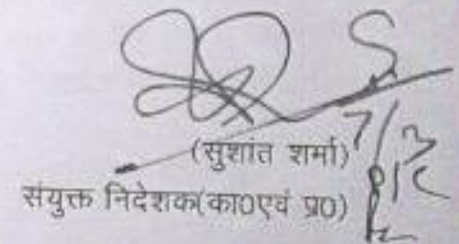 (सुशांत शर्मा)
संयुक्त निदेशक(का0एवं प्र0)